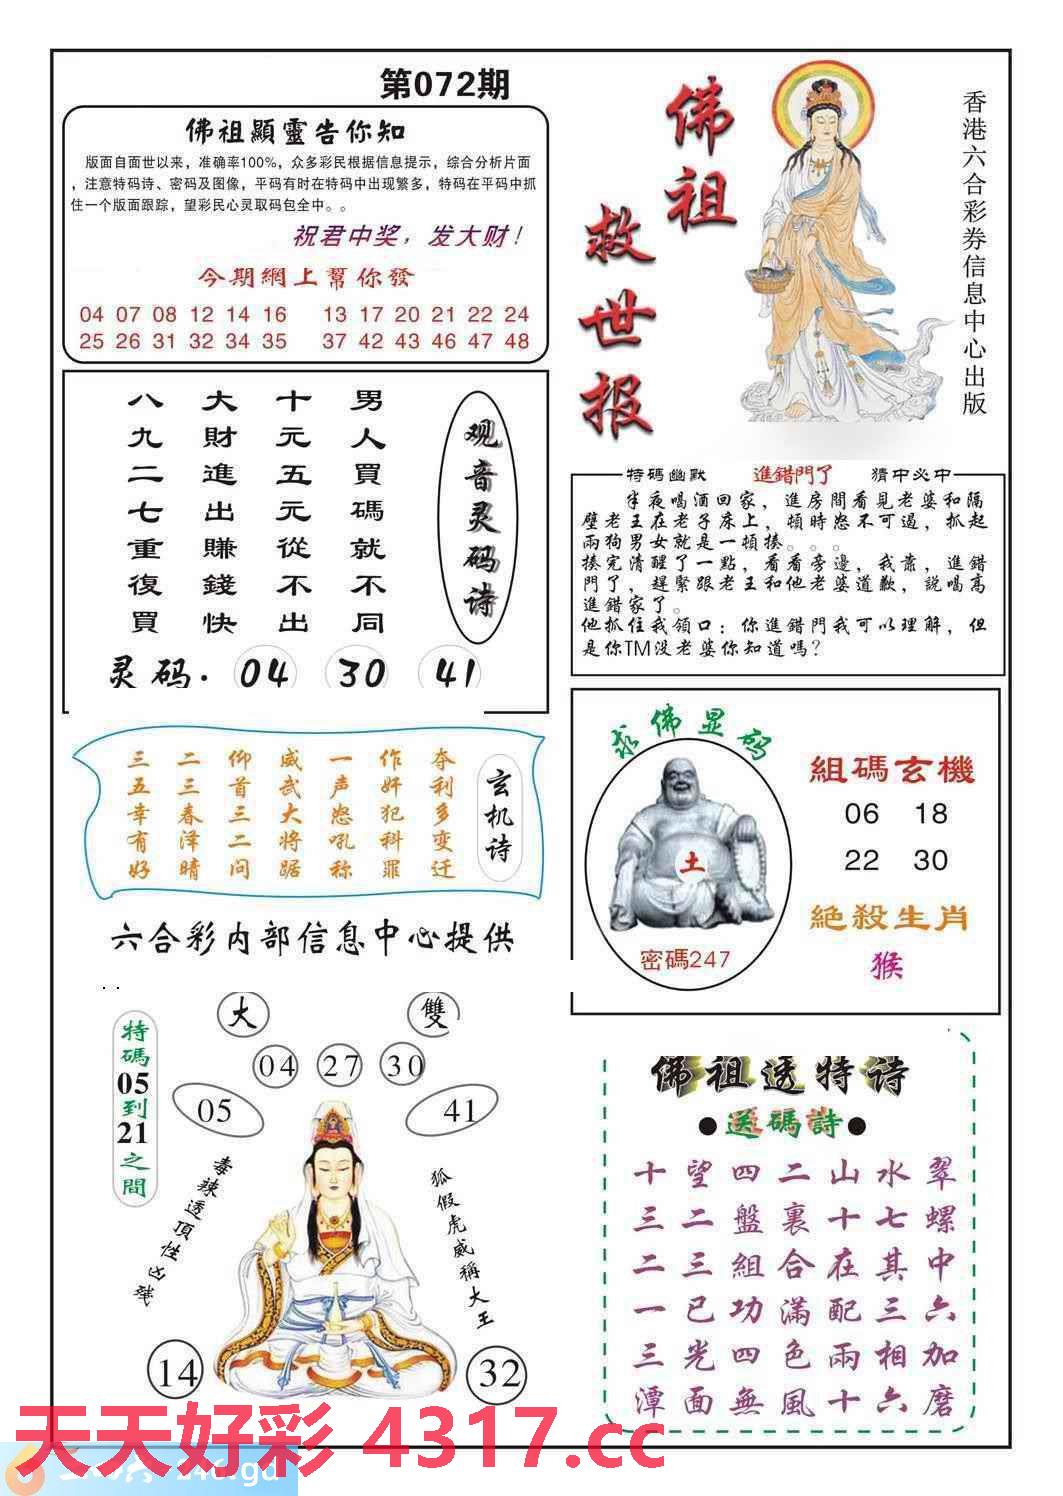 第072期
佛祖顯靈告你知
版面自面世以来，准确率100%，众多彩民根据信息提示，综合分析片面
，注意特码诗、密码及图像，平码有时在特码中出现繁多，特码在平码中抓
住一个版面跟踪，望彩民心灵取码包全中。。
祝君中奖，发大财！
今期網上幫你發
04 07 08 12 14 16 13 17 20 21 22 24
25 26 31 32 34 35 37 42 43 46 47 48
佛祖救世报
香港六合彩券信息中心出版
观音灵码诗
男人買碼就不同
十元五元從不出
大財進出賺錢快
八九二七重復買
灵码. 04 30 41
特碼幽默 進錯門了 猜中必中
半夜喝酒回家，進房間看見老婆和隔
壁老王在老子床上，頓時怒不可遏，抓起
兩狗男女就是一頓揍。。。
揍完清醒了一點，看看旁邊，我靠，進錯
門了，趕緊跟老王和他老婆道歉，説喝高
進錯家了。
他抓住我領口：你進錯門我可以理解，但
是你TM没老婆你知道嗎？
玄机诗
夺利多变迁
作奸犯科罪
一声怒吼称
威武大将踞
仰首三二问
二三春泽晴
三五幸有好
六合彩内部信息中心提供
求佛显码
土
密碼247
組碼玄機
06 18
22 30
絶殺生肖
猴
特碼05到21之間
大 雙
04 27 30
05 41
毒辣透頂性凶残
狐假虎威稱大王
14 32
佛祖透特诗
●送碼詩●
十望四二山水翠
三二盤裏十七螺
二三組合在其中
一已功滿配三六
三光四色兩相加
潭面無風十六磨
天天好彩 4317.cc
246.gd